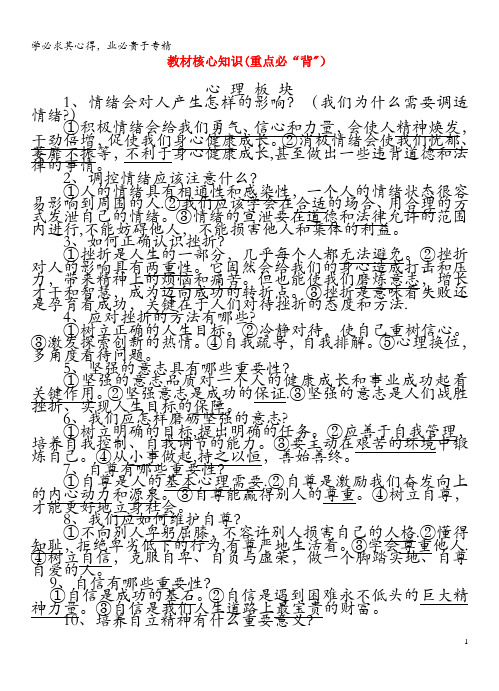 学必求其心得，业必贵于专精
教材核心知识(重点必“背")
心 理 板 块
1、情绪会对人产生怎样的影响？（我们为什么需要调适
情绪?）
①积极情绪会给我们勇气、信心和力量，会使人精神焕发，
干劲倍增，促使我们身心健康成长。②消极情绪会使我们忧郁、
萎靡不振等，不利于身心健康成长,甚至做出一些违背道德和法
律的事情。
2、调控情绪应该注意什么？
①人的情绪具有相通性和感染性，一个人的情绪状态很容
易影响到周围的人.②我们应该学会在合适的场合、用合理的方
式发泄自己的情绪。③情绪的宣泄要在道德和法律允许的范围
内进行,不能妨碍他人，不能损害他人和集体的利益。
3、如何正确认识挫折？
①挫折是人生的一部分，几乎每个人都无法避免。②挫折
对人的影响具有两重性。它固然会给我们的身心造成打击和压
力，带来精神上的烦恼和痛苦。但也能使我们磨炼意志，增长
才干和智慧，成为迈向成功的转折点。③挫折是意味着失败还
是孕育着成功，关键在于人们对待挫折的态度和方法.
4、应对挫折的方法有哪些?
①树立正确的人生目标。②冷静对待，使自己重树信心。
③激发探索创新的热情。④自我疏导，自我排解。⑤心理换位，
多角度看待问题。
5、坚强的意志具有哪些重要性？
①坚强的意志品质对一个人的健康成长和事业成功起着
关键作用。②坚强意志是成功的保证.③坚强的意志是人们战胜
挫折、实现人生目标的保障。
6、我们应怎样磨砺坚强的意志?
①树立明确的目标,提出明确的任务。②应善于自我管理，
培养自我控制、自我调节的能力。③要主动在艰苦的环境中锻
炼自己。④从小事做起,持之以恒，善始善终。
7、自尊有哪些重要性？
①自尊是人的基本心理需要.②自尊是激励我们奋发向上
的内心动力和源泉。③自尊能赢得别人的尊重。④树立自尊，
才能更好地立身社会。
8、我们应如何维护自尊？
①不向别人卑躬屈膝，不容许别人损害自己的人格.②懂得
知耻，拒绝卑劣低下的行为,有尊严地生活着。③学会尊重他人.
④树立自信，克服自卑、自负与虚荣，做一个脚踏实地、自尊
自爱的人。
9、自信有哪些重要性?
①自信是成功的基石。②自信是遇到困难永不低头的巨大精
神力量。③自信是我们人生道路上最宝贵的财富。
10、培养自立精神有什么重要意义？
1